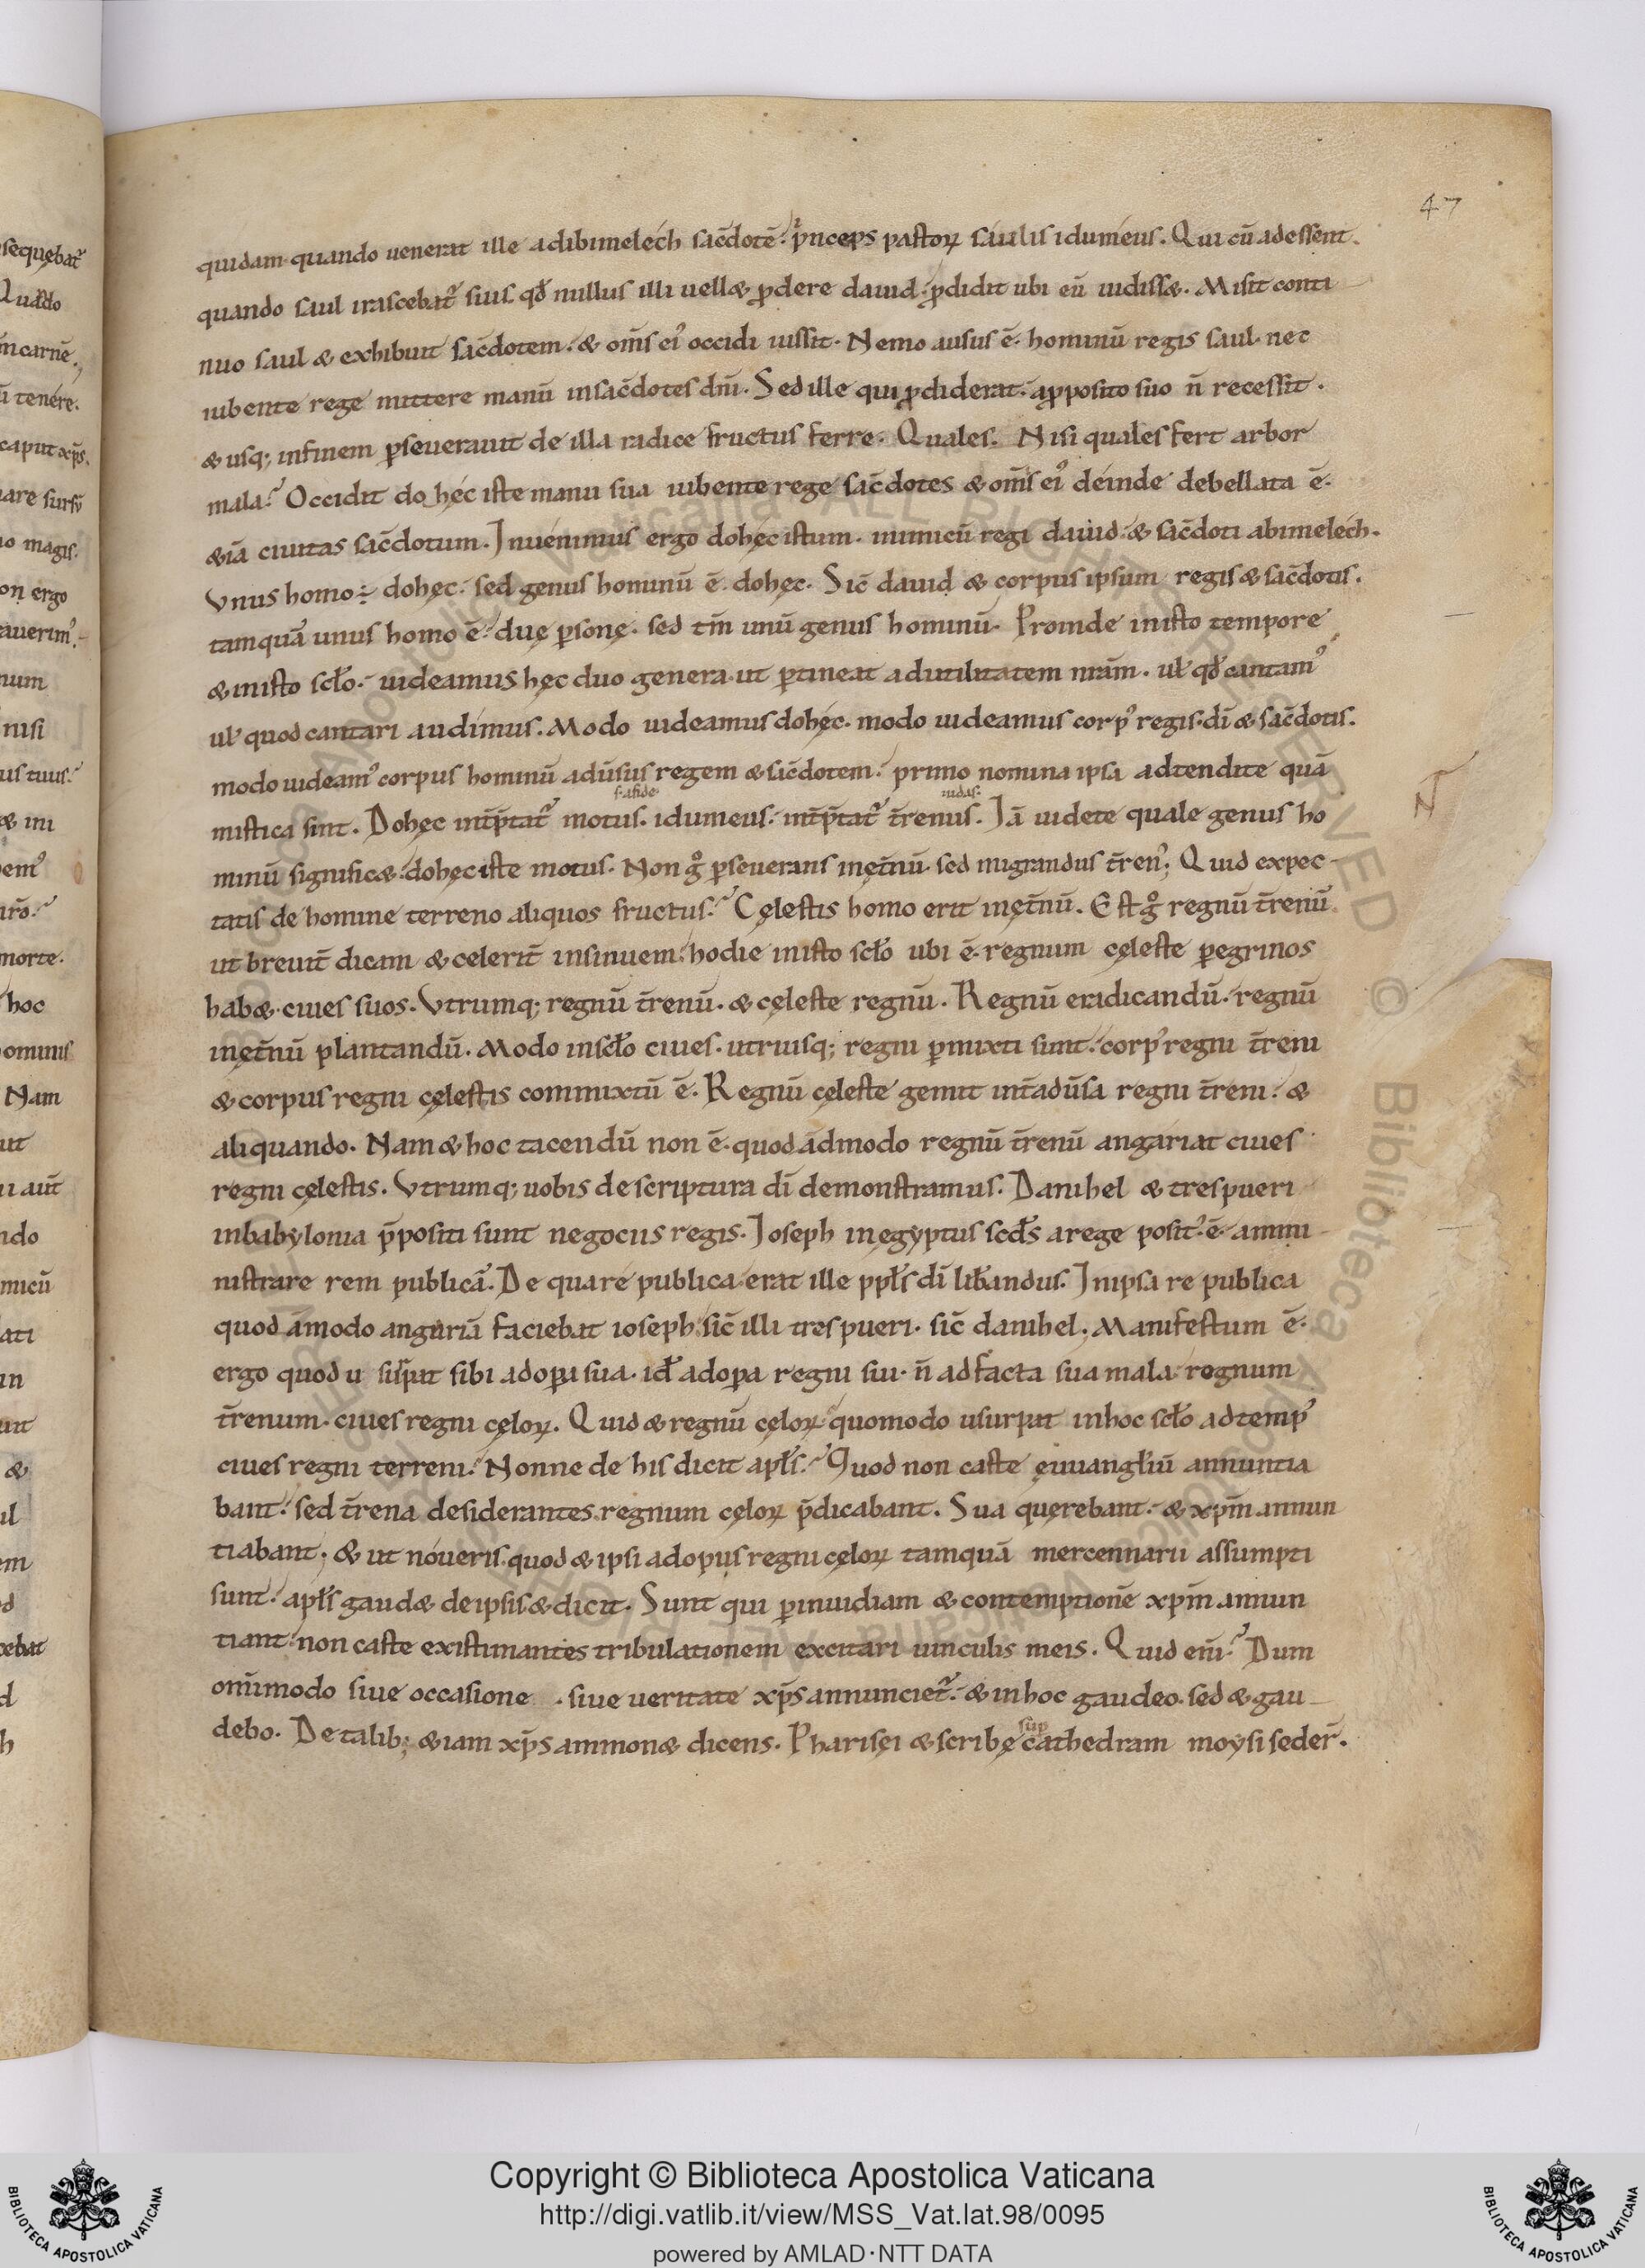 47
quidam·quando uenerat ille adibimelech sac̄dotē· p̓nceps pastoꝝ saulis idumeus. Qui cū adessent.
quando saul irascebat᷑ suis· qđ nullus illi uell& ꝓdere dauid· ꝓdidit ubi eū uidiss&. Misit conti
nuo saul & exhibuit sac̄dotem· & om̄s ei᾽ occidi iussit. Nemo ausus ē· hominū regis saul· nec
iubente rege mittere manū insac̄dotes dn̄i. Sed ille qui ꝓdiderat· aꝓposito suo n̄ recessit.
& usq; infinem ꝑseuerauit de illa radice fructus ferre. Quales. Nisi quales fert arbor
mala? Occidit dohęc iste manu sua iubente rege sac̄dotes & om̄s ei᾽ deinde debellata ē·
&iā ciuitas sac̄dotum. Inuenimus ergo dohęc istum· inimicū regi dauid· & sac̄doti abimelech.
Vnus homo ÷ dohęc· sed genus hominū ē· dohęc. Sic̄ dauid & corpus ipsum regis & sac̄dotis.
tamquā unus homo ē· duę ꝑsonę· sed tm̄ unū genus hominū. Proinde inisto tempore
& inisto scło· uideamus hęc duo genera· ut ꝑtineat adutilitatem nr̄am. uł qđ cantam᾽
uł quod cantari audimus. Modo uideamus dohęc· modo uideamus corp᾽ regis· dī & sac̄dotis.
modo uideam᾽ corpus hominū adūsus regem & sac̄dotem· primo nomina ipsa adtendite quā
mistica sint. Dohęc int̄p̄tat᷑ motus. idumeus· int̄p̄tat᷑ t̄renus. Iā uidete quale genus ho
s· afide
iudas·
minū signific& dohęc iste motus. Non g̊ ꝑseuerans inęt̄nū· sed migrandus t̄ren᾽; Quid expec-
tatis de homine terreno aliquos fructus? Cęlestis homo erit inęt̄nū. Est g̊ regnū t̄renū
ut breuit̄ dicam & celerit̄ insinuem· hodie inisto scło ubi ē· regnum cęleste ꝑegrinos
hab&· ciues suos. Vtrumq; regnū t̄renū· & cęleste regnū. Regnū eradicandū· regnū
inęt̄nū plantandū. Modo inscło ciues· utriusq; regni ꝑmixti sunt· corp᾽ regni t̄reni
& corpus regni cęlestis commixtū ē. Regnū cęleste gemit int̄adūsa regni t̄reni· &
aliquando. Nam & hoc tacendū non ē· quodādmodo regnū t̄renū angariat ciues
regni cęlestis. Vtrumq; uobis descriptura dī demonstramus. Danihel & trespueri
inbabylonia p̄positi sunt negociis regis. Ioseph inęgyptus scđs arege posit᾽ ē· ammi-
nistrare rem publicā. De quare publica erat ille ppłs dī lib̄andus. Inipsa re publica
quod āmodo angariā faciebat ioseph· sic̄ illi tres pueri· sic̄ danihel; Manifestum ē·
ergo quod u surpat sibi adoꝑa sua· idł adoꝑa regni sui· n̄ adfacta sua mala· regnum
t̄renum· ciues regni cęloꝝ. Quid & regnū cęloꝝ quomodo usurpat inhoc scło adtemp᾽
ciues regni terreni? Nonne de his dicit apłs? Quod non caste ęuuangłiū annuntia
bant· sed t̄rena desiderantes· regnum cęloꝝ p̄dicabant. Sua quęrebant· & xp̄m annun
tiabant; & ut noueris· quod & ipsi adopus regni cęloꝝ tamquā mercennarii assumpti
sunt· apłs gaud& deipsis & dicit. Sunt qui ꝑinuidiam & contemptionē xp̄m annun
tiant· non caste existimantes tribulationem excitari uinculis meis. Quid eni̅? Dum
omi̅modo siue occasione · siue ueritate xp̄s annunciet᷑· & inhoc gaudeo· sed & gau
debo. Detalib; &iam xp̄s ammon& dicens. Pharisęi & scribę cathedram moysi seder̄.
sup
Copyright © Biblioteca Apostolica Vaticana
http://digi.vatlib.it/view/MSS_Vat.lat.98/0095
powered by AMLAD·NTT DATA
BIBLIOTECA APOSTOLICA VATICANA
BIBLIOTECA APOSTOLICA VATICANA